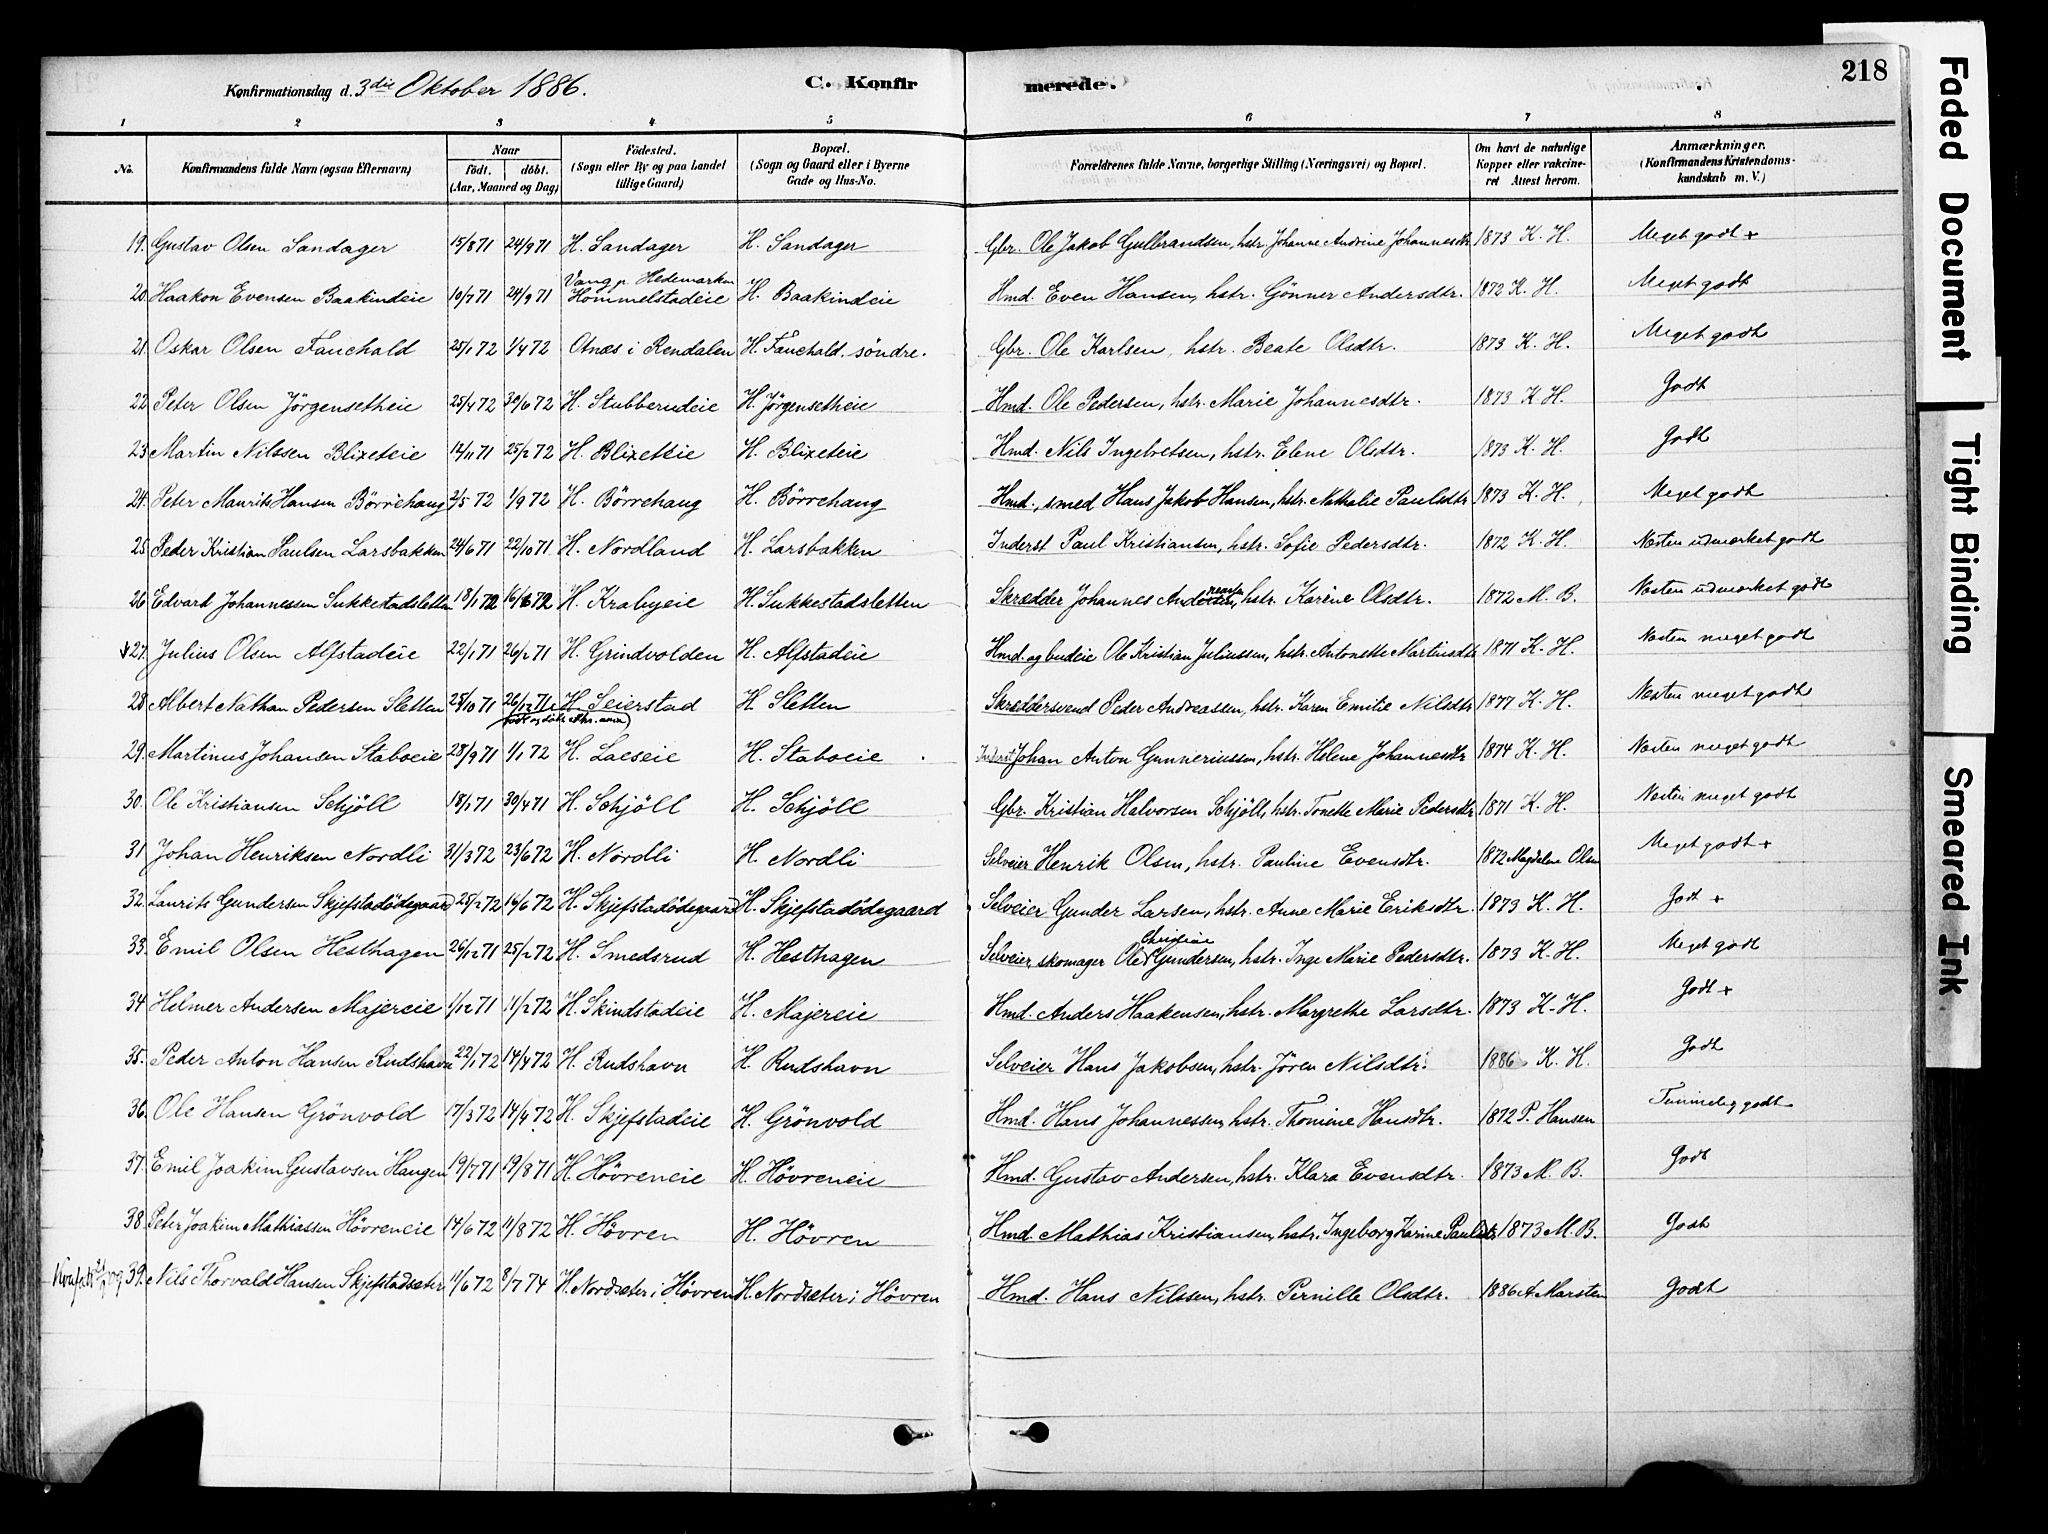 218
Konfirmationsdag d. 3die Oktober 1886. C. Konfirmerede.
1 2 3 4 5 6 7 8
No. Konfirmandens fulde Navn (ogsaa Efternavn) Naar Födt. döbt. (Aar, Maaned og Dag) Födested. (Sogn eller By og paa Landet tillige Gaard) Bopæl. (Sogn og Gaard eller i Byerne Gade og Hus-No. Forældrenes fulde Navne, borgerlige Stilling (Næringsvei) og Bopæl. Om havt de naturlige Kopper eller vakcineret Attest herom. Anmærkninger. (Konfirmandens Kristendomskundskab m. V.)
19. Gustav Olsen Sandager 15/8 71 24/9 71 H. Sandager H. Sandager Gbr. Ole Jakob Gulbrandsen, hstr. Johanne Andrine Johannesdtr 1873 K. H. Meget godt +
20. Haakon Evensen Baakindeie 10/7 71 24/9 71 Vang p. Hedemarken Hommelstadeie H. Baakindeie Hmd. Even Hansen, hstr. Gönner Andersdtr. 1872 K. H. Meget godt
21. Oskar Olsen Fauchald 25/1 72 1/4 72 Otnes i Rendalen H. Fauchald söndre. Gbr. Ole Karlsen, hstr. Beate Olsdtr. 1873 K. H. Meget godt
22. Peter Olsen Jörgensetheie 25/4 72 30/6 72 H. Stubberudeie H. Jörgensetheie Hmd. Ole Pedersen, hstr. Marie Johannesdtr. 1873 K H. Godt
23. Martin Nilssen Blixeteie 12/11 71 25/2 72 H. Blixetteie H. Blixeteie Hmd. Nils Ingebretsen, hstr. Elene Olsdtr. 1873 K. H. Godt
24. Peter Maurits Hansen Börrehaug 2/5 72 1/9 72 H. Börrehaug H. Börrehaug Hmd., smed Hans Jakob Hansen, hstr. Nathalie Paulsdtr 1873 K. H. Meget godt
25. Peder Kristian Paulsen Larsbakken 24/6 71 22/10 71 H. Nordland H. Larsbakken Inderst Paul Kristiansen, hstr. Sofie Pedersdtr. 1872 K. H. Næsten udmærket godt
26. Edvard Johannessen Sukkestadsletten 18/1 72 16/6 72 H. Krabyeie H. Sukkestadsletten Skrædder Johannes Andersen, hstr. Karine Olsdtr. 1872 M. B. Næsten udmærket godt
27. Julius Olsen Alfstadeie 22/1 71 26/2 71 H. Grindvolden H. Alfstadeie Hmd. og budeie Ole Kristian Juliussen, hstr. Antonette Martinsdtr 1871 K. H. Næsten meget godt
28. Albert Nathan Pedersen Sletten 25/10 71 26/12 71 H. Seierstad H. Sletten Skræddersvend Peder Andreassen, hstr. Karen Emilie Nilsdtr 1877 K. H. Næsten meget godt
29. Martinus Johansen Staboeie 28/9 71 1/1 72 H. Laeseie H. Staboeie Inderst Johan Anton Gunneriussen, hstr. Helene Johannesdtr 1874 K. H. Næsten meget godt
30. Ole Kristiansen Schjöll 18/1 71 30/4 71 H. Schjöll H. Schjöll Gbr. Kristian Halvorsen Schjöll, hstr. Tonette Marie Pedersdtr 1871 K. H. Næsten meget godt
31 Johan Henriksen Nordli 31/3 72 23/6 72 H. Nordli H. Nordli Selveier Henrik Olsen, hstr. Pauline Evensdtr. 1872 Magdelene Olsen Meget godt +
32. Laurits Gundersen Skjefstadödegaard 25/2 72 16/6 72 H. Skjefstadödegaard H. Skjefstadödegaard Selveier Gunder Larsen, hstr. Anne Marie Eriksdtr. 1873 K. H. Godt +
33. Emil Olsen Hesthagen 26/12 71 25/2 72 H. Smedsrud H. Hesthagen Selveier, skomager Ole Christian Gundersen, hstr. Inge Marie Pedersdtr. 1873 K. H. Meget godt
34 Helmer Andersen Majereie 1/12 71 11/2 72 H. Skindstadeie H. Majereie Hmd. Anders Haakensen, hstr. Margrethe Larsdtr. 1873 K. H. Godt +
35. Peder Anton Hansen Rudshavn 22/1 72 14/4 72 H. Rudshavn H. Rudshavn Selveier Hans Jakobsen, hstr. Jören Nilsdtr. 1886 K. H. Godt
36. Ole Hansen Grönvold 17/3 72 14/4 72 H. Skjefstadeie H. Grönvold Hmd. Hans Johannessen, hstr. Thomine Hansdtr. 1872 P. Hansen Temmelig godt
37. Emil Joakim Gustavsen Haugen 19/7 71 19/8 71 H. Hövreneie H. Hövreneie Hmd. Gustav Andersen, hstr. Klara Evensdtr. 1873 M. B. Godt
38. Peter Joakim Mathiassen Hövreneie 14/6 72 11/8 72 H. Hövren H. Hövren Hmd. Mathias Kristiansen, hstr. Ingeborg Karine Paulsdtr. 1873 M. B. Godt
39. Nils Thorvald Hansen Skjefstadsæter 1/6 72 8/7 74 H. Nordsæter i Hövren H. Nordsæter i Hövren Hmd. Hans Nilssen, hstr. Pernille Olsdtr. 1886 A Marsten Godt
Faded Document
Tight Binding
Smeared Ink